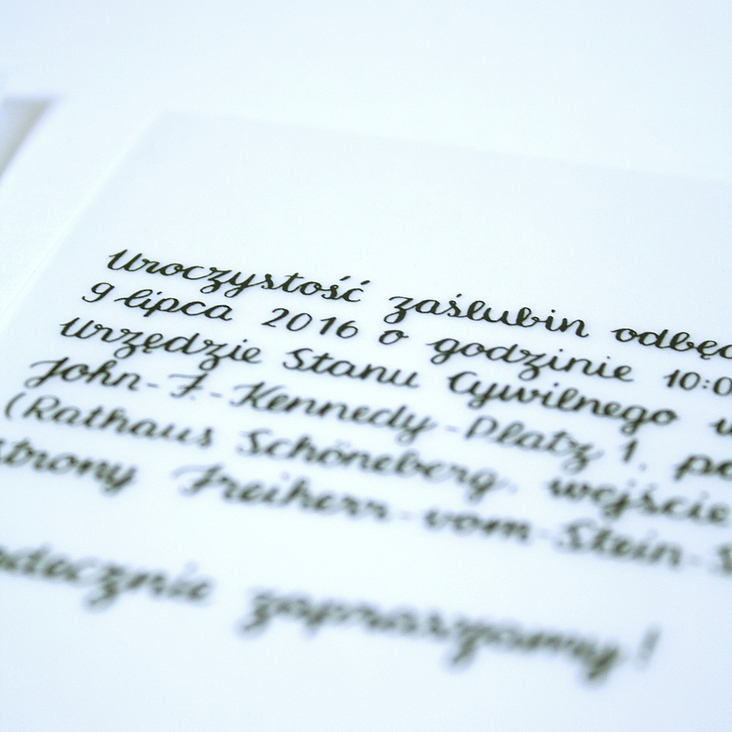 Uroczystość zaślubin odbęd
9 lipca 2016 o godzinie 10:0
Urzędzie Stanu Cywilnego w
John-F.-Kennedy-Platz 1, po
(Rathaus Schöneberg, wejście
strony Freiherr-vom-Stein-S
decznie zapraszamy!